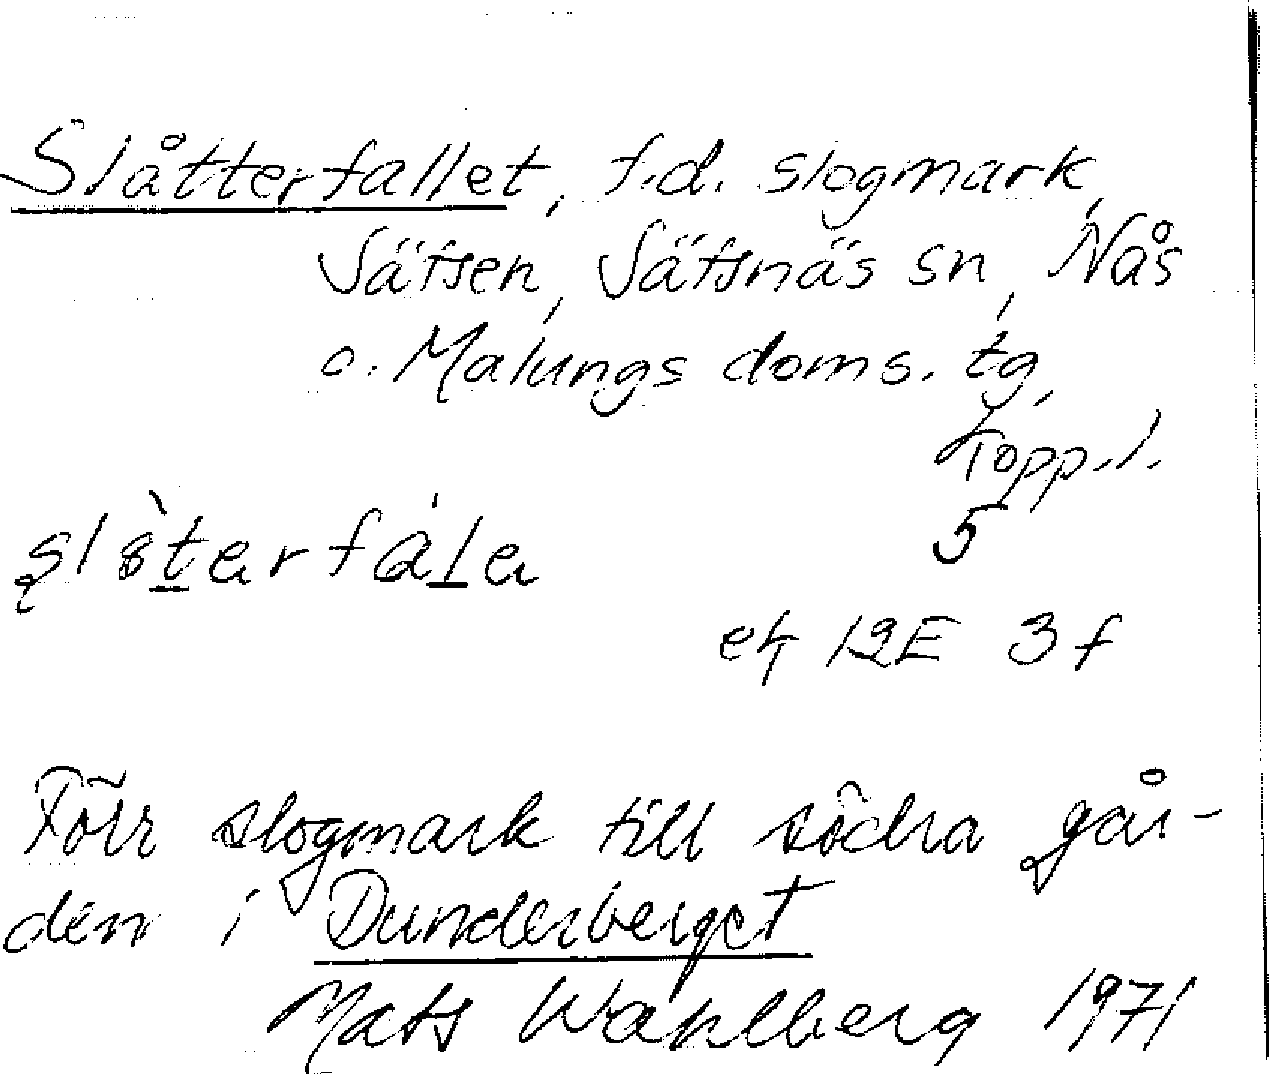 Slåtterfallet, f.d. slogmark,
Sätsen, Sätsnäs sn, Nås
o. Malungs doms. tg,
Kopp. l.
5
ek 12E 3f
Förr slogmark till södra går-
den i Dunderberget
Mats Wahlberg 1971